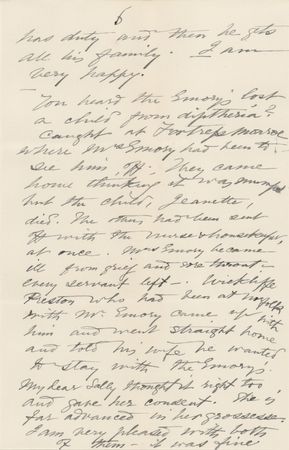 6
has duty and then he gets
all his family. I am
very happy.
You heard the Emory's lost
a child from diptheria?
Caught at Fortress Monroe
where Mrs Emory had been to
see him, They came
home thinking it was mumps
but the child, Jeanette,
died. The others had been sent
off with the nurse & housekeeper,
at once. Mrs Emory became
ill from grief and sore throat -
every servant left - . Wickliffe
Preston who had been at Norfolk
with Mr Emory came up with
him and went straight home
and told his wife he wanted
to stay with the Emory's
My dear Sally thought it right too,
and gave her consent. She is
far advanced in her grossesse.
I am very pleased with both
of them - it was fine